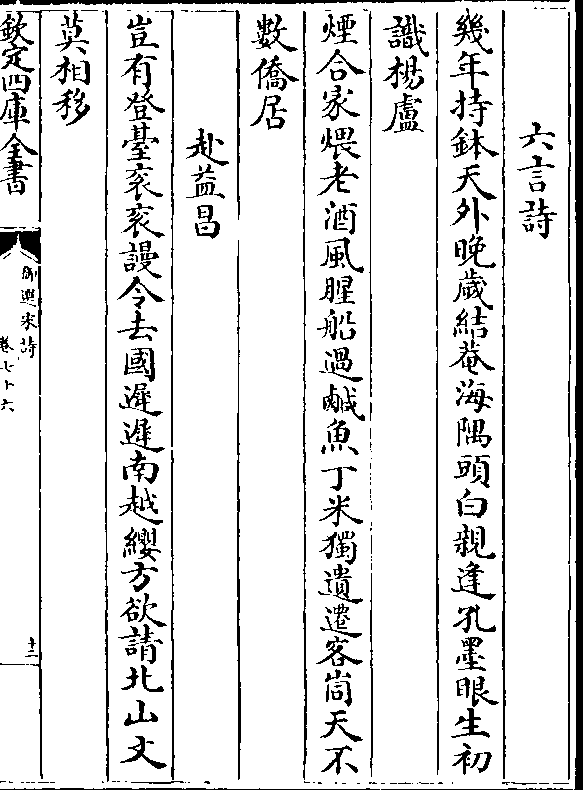 六言詩
幾年持鉢天外晚歲結菴海隅頭白親逢孔墨眼生初
識楊盧
煙合豕煨老酒風腥船過鹹魚丁米獨遺遷客峝天不
數僑居
赴益昌
豈有登臺衮衮謾令去國遲遲南越纓方欲請北山文
莫相移
欽定四庫全書
御選宋詩
卷七十六
十二